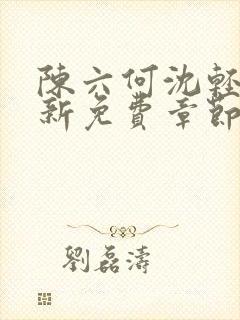 陳六何沈輕
新免費章節
劉磊濤